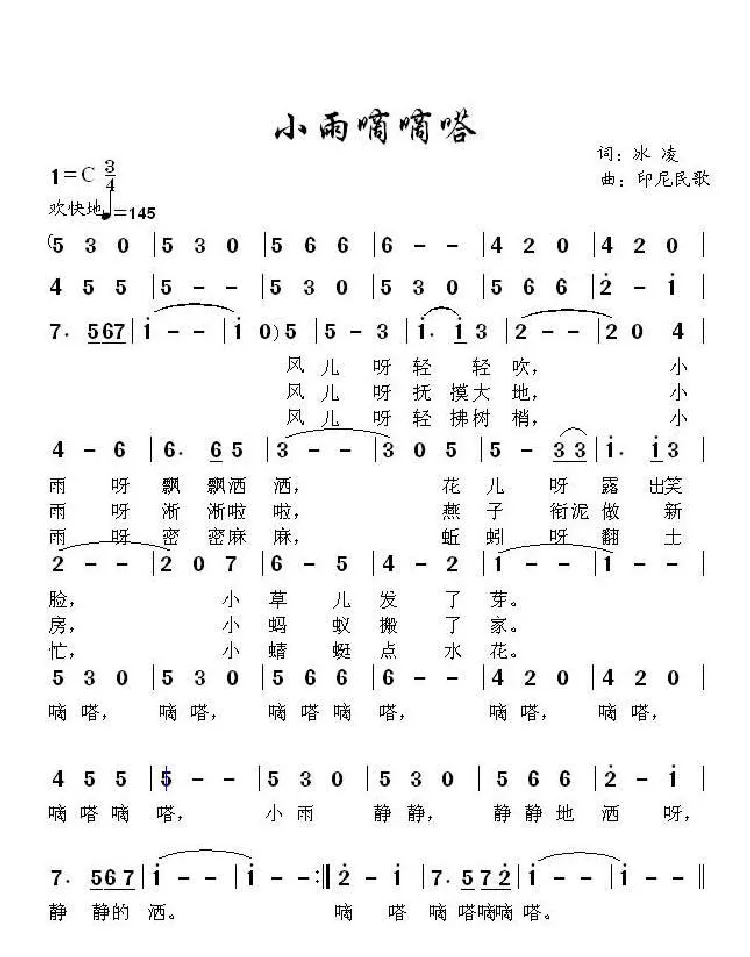 小雨嘀嘀嗒
词：冰 凌
1=C 3/4
曲：印尼民歌
欢快地 ♩=145
(5 3 0 | 5 3 0 | 5 6 6 | 6 - - | 4 2 0 | 4 2 0 |
4 5 5 | 5 - - | 5 3 0 | 5 3 0 | 5 6 6 | 2̇ - 1̇ |
7. 5 6 7 | 1̇ - - | 1̇ 0) 5 | 5 - 3 | 1̇. 1̇ 3 | 2 - - | 2 0 4 |
风 儿 呀 轻 轻 吹， 小
风 儿 呀 抚 摸 大 地， 小
风 儿 呀 轻 拂 树 梢， 小
4 - 6 | 6. 6 5 | 3 - - | 3 0 5 | 5 - 3 3 | 1̇. 1̇ 3 |
雨 呀 飘 飘 洒 洒， 花 儿 呀 露 出 笑
雨 呀 淅 淅 啦 啦， 燕 子 衔 泥 做 新
雨 呀 密 密 麻 麻， 蚯 蚓 呀 翻 土
2 - - | 2 0 7 | 6 - 5 | 4 - 2 | 1 - - | 1 - - |
脸， 小 草 儿 发 了 芽。
房， 小 蚂 蚁 搬 了 家。
忙， 小 蜻 蜓 点 水 花。
5 3 0 | 5 3 0 | 5 6 6 | 6 - - | 4 2 0 | 4 2 0 |
嘀 嗒， 嘀 嗒， 嘀 嗒 嘀 嗒， 嘀 嗒， 嘀 嗒，
4 5 5 | 5 - - | 5 3 0 | 5 3 0 | 5 6 6 | 2̇ - 1̇ |
嘀 嗒 嘀 嗒， 小 雨 静 静， 静 静 地 洒 呀，
7. 5 6 7 | 1̇ - - | 1̇ - - :‖ 2̇ - 1̇ | 7. 5 7 2̇ | 1̇ - - | 1̇ - - ‖
静 静 的 洒。 嘀 嗒 嘀 嗒 嘀 嘀 嗒。